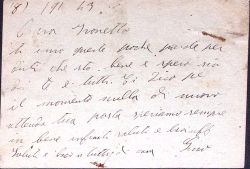 8) 191 43.
Cara Ivonetta
ti invio queste poche parole per
dirti che sto bene e spero sia
di te e tutti. Di Zico pe
il momento nulla di nuovo
attendo tua posta speriamo sempre
in bene infiniti saluti e baci
saluti e baci a tutti di casa Gino